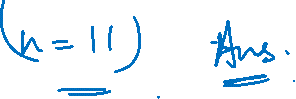 (n = 11) Ans.